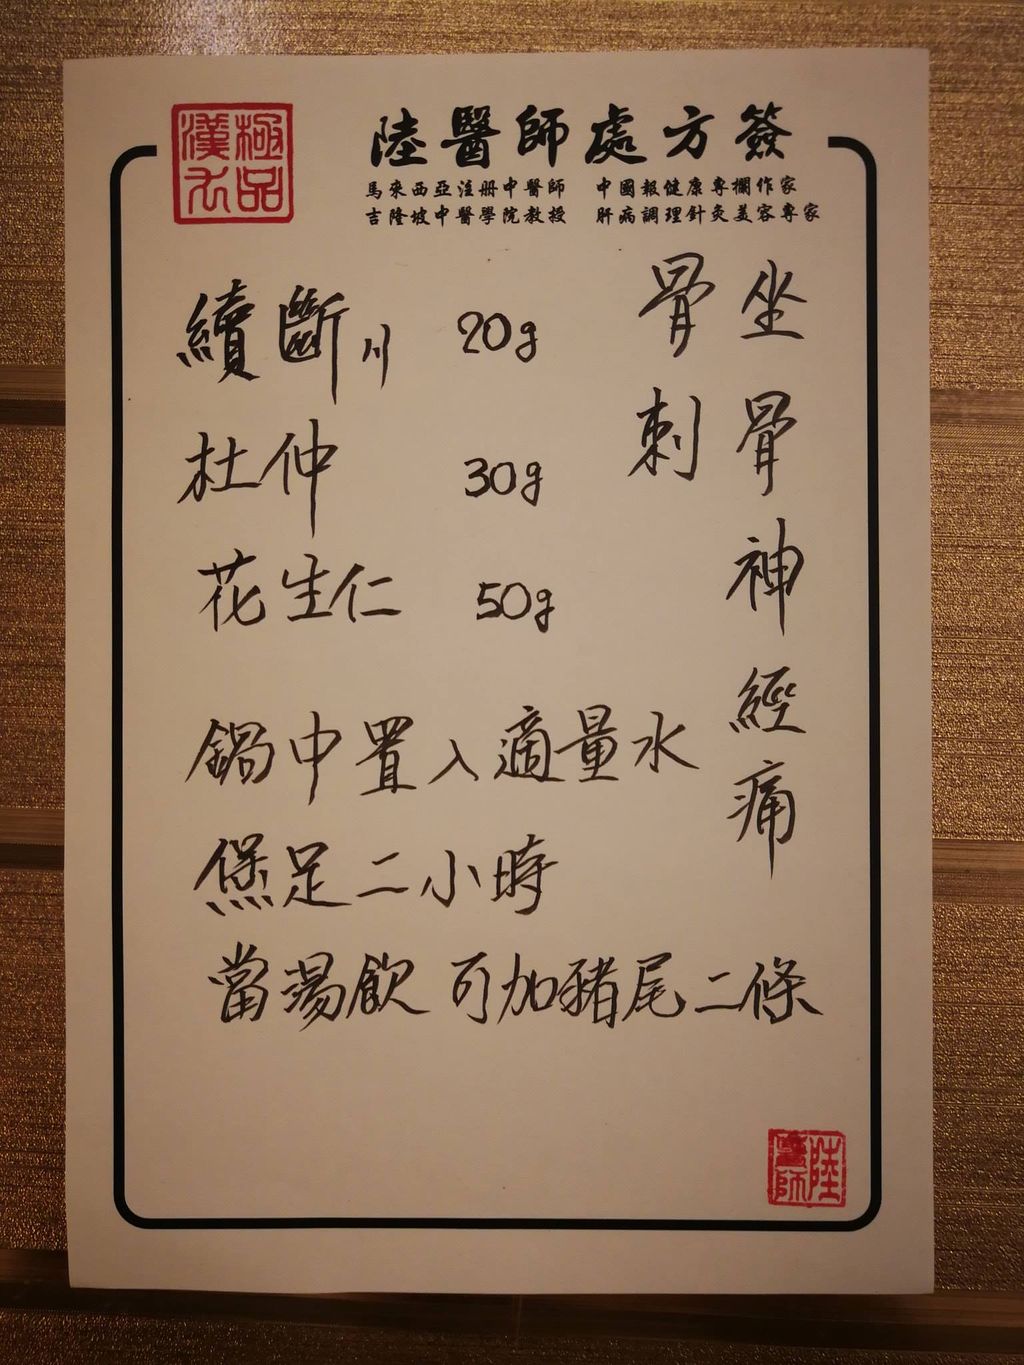 極品
漢方
陸醫師處方簽
馬來西亞注册中醫師 中國報健康專欄作家
吉隆坡中醫學院教授 肝病調理針灸美容專家
坐骨神經痛
骨刺
續斷川 20g
杜仲 30g
花生仁 50g
鍋中置入適量水
煲足二小時
當湯飲 可加豬尾二條
陸
醫師